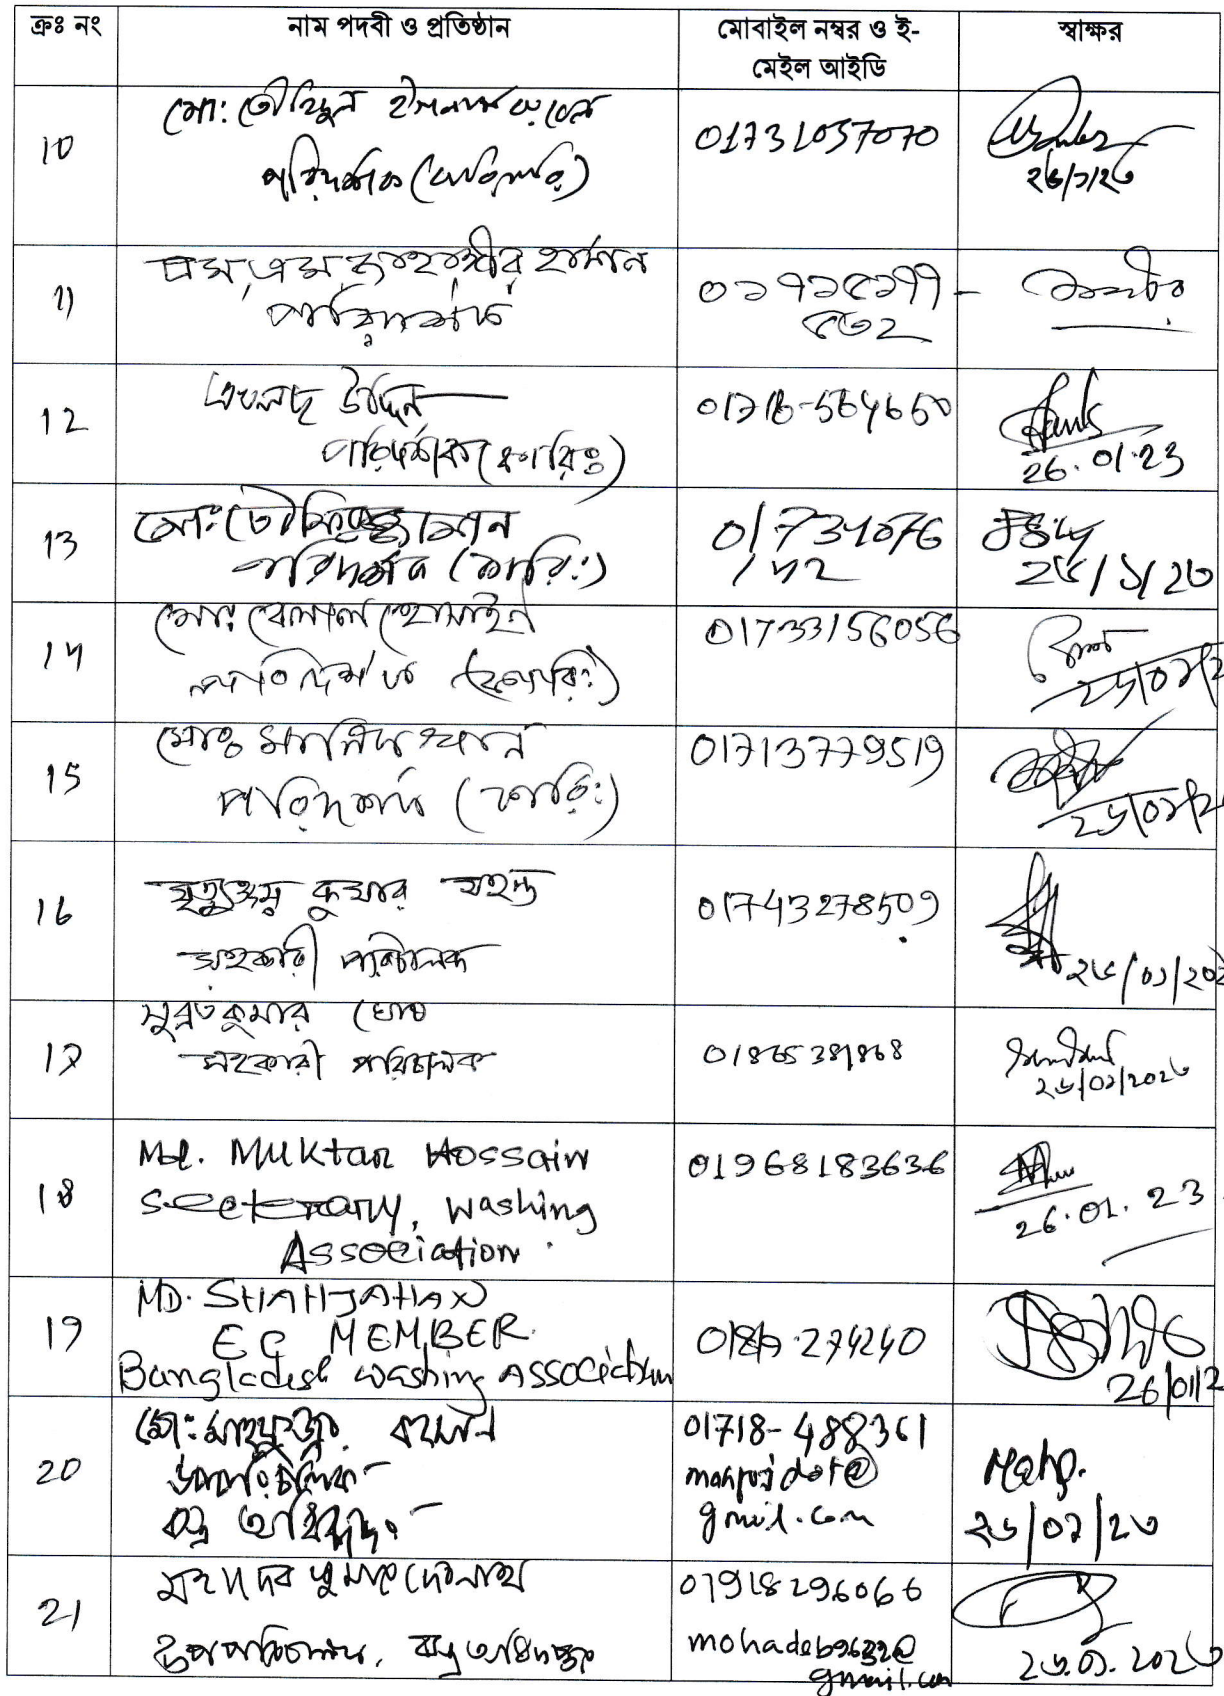 ক্রঃ নং
নাম পদবী ও প্রতিষ্ঠান
মোবাইল নম্বর ও ই-
মেইল আইডি
স্বাক্ষর
10
মো: তৌহিদুল ইসলাম
পরিদর্শক (কারিগরি)
01731057070
২৬/১/২৩
11
এম, এম, জাহাঙ্গীর হাসান
পরিদর্শক
০১৭১৫১৭৭-
৫৩২
12
এখলাছ উদ্দিন
পরিদর্শক (কারিঃ)
01716-564650
26.01.23
13
মো: তৌফিকুজ্জামান
পরিদর্শক (কারি:)
২৬/১/২৩
14
মোঃ বেলাল হোসাইন
পরিদর্শক (কারি:)
01733156056
২৬/০১/২
15
মোঃ মানিক খান
পরিদর্শক (কারি:)
01713779519
২৬/০১/২
16
মৃত্যুঞ্জয় কুমার মহন্ত
সহকারী পরিচালক
01743278509
২৬/০১/২০২
17
সুব্রত কুমার ঘোষ
সহকারী পরিচালক
২৬/০১/২০২৩
18
Md. Muktar Hossain
Secetrary, Washing
Association.
01968183636
26.01.23
19
MD. SHAHJAHAN
EC MEMBER.
Bangladesh Washing Association
26/01/2
20
মো: মাহফুজুর রহমান
উপপরিচালক
বস্ত্র অধিদপ্তর
01718-488361
gmail.com
২৬/০১/২৩
21
মহাদেব কুমার দেবনাথ
উপপরিচালক, বস্ত্র অধিদপ্তর
01918296066
mohadeb9632@
gmail.com
২৬.০১.২০২৩